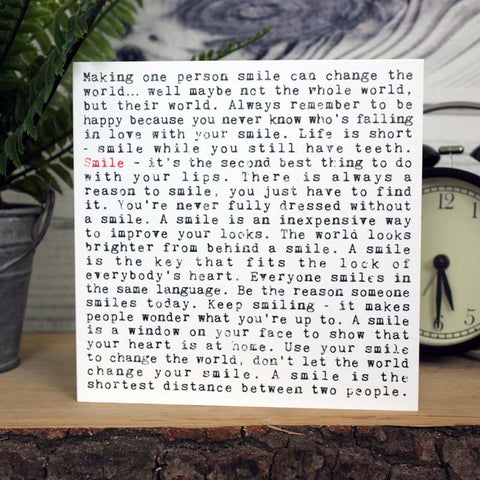 Making one person smile can change the
world... well maybe not the whole world,
but their world. Always remember to be
happy because you never know who's falling
in love with your smile. Life is short
- smile while you still have teeth.
Smile - it's the second best thing to do
with your lips. There is always a
reason to smile, you just have to find
it. You're never fully dressed without
a smile. A smile is an inexpensive way
to improve your looks. The world looks
brighter from behind a smile. A smile
is the key that fits the lock of
everybody's heart. Everyone smiles in
the same language. Be the reason someone
smiles today. Keep smiling - it makes
people wonder what you're up to. A smile
is a window on your face to show that
your heart is at home. Use your smile
to change the world, don't let the world
change your smile. A smile is the
shortest distance between two people.
12
1
2
3
4
5
6